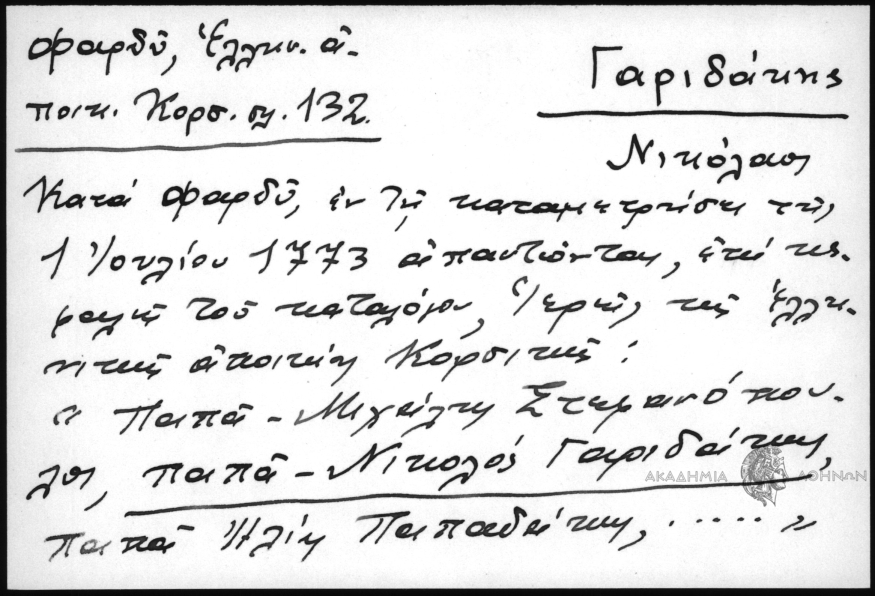 Φαρδῦ, Ἑλλην. ἀ-
ποικ. Κορσ. σ. 132.
Γαριδάκης
Νικόλαος
Κατά Φαρδῦ, ἐν τῇ καταμετρήσει τῆς
1 Ἰουλίου 1773 ἀπαντῶνται, ἐπί κε-
φαλῆς τοῦ καταλόγου, Ἱερεῖς τῆς Ἑλλη-
νικῆς ἀποικίας Κορσικῆς :
" Παπᾶ - Μιχαήλης Στεφανόπου-
λος, παπᾶ - Νικολός Γαριδάκης,
παπᾶ Ἠλίας Παπαδάκης, ..... "
ΑΚΑΔΗΜΙΑ ΑΘΗΝΩΝ